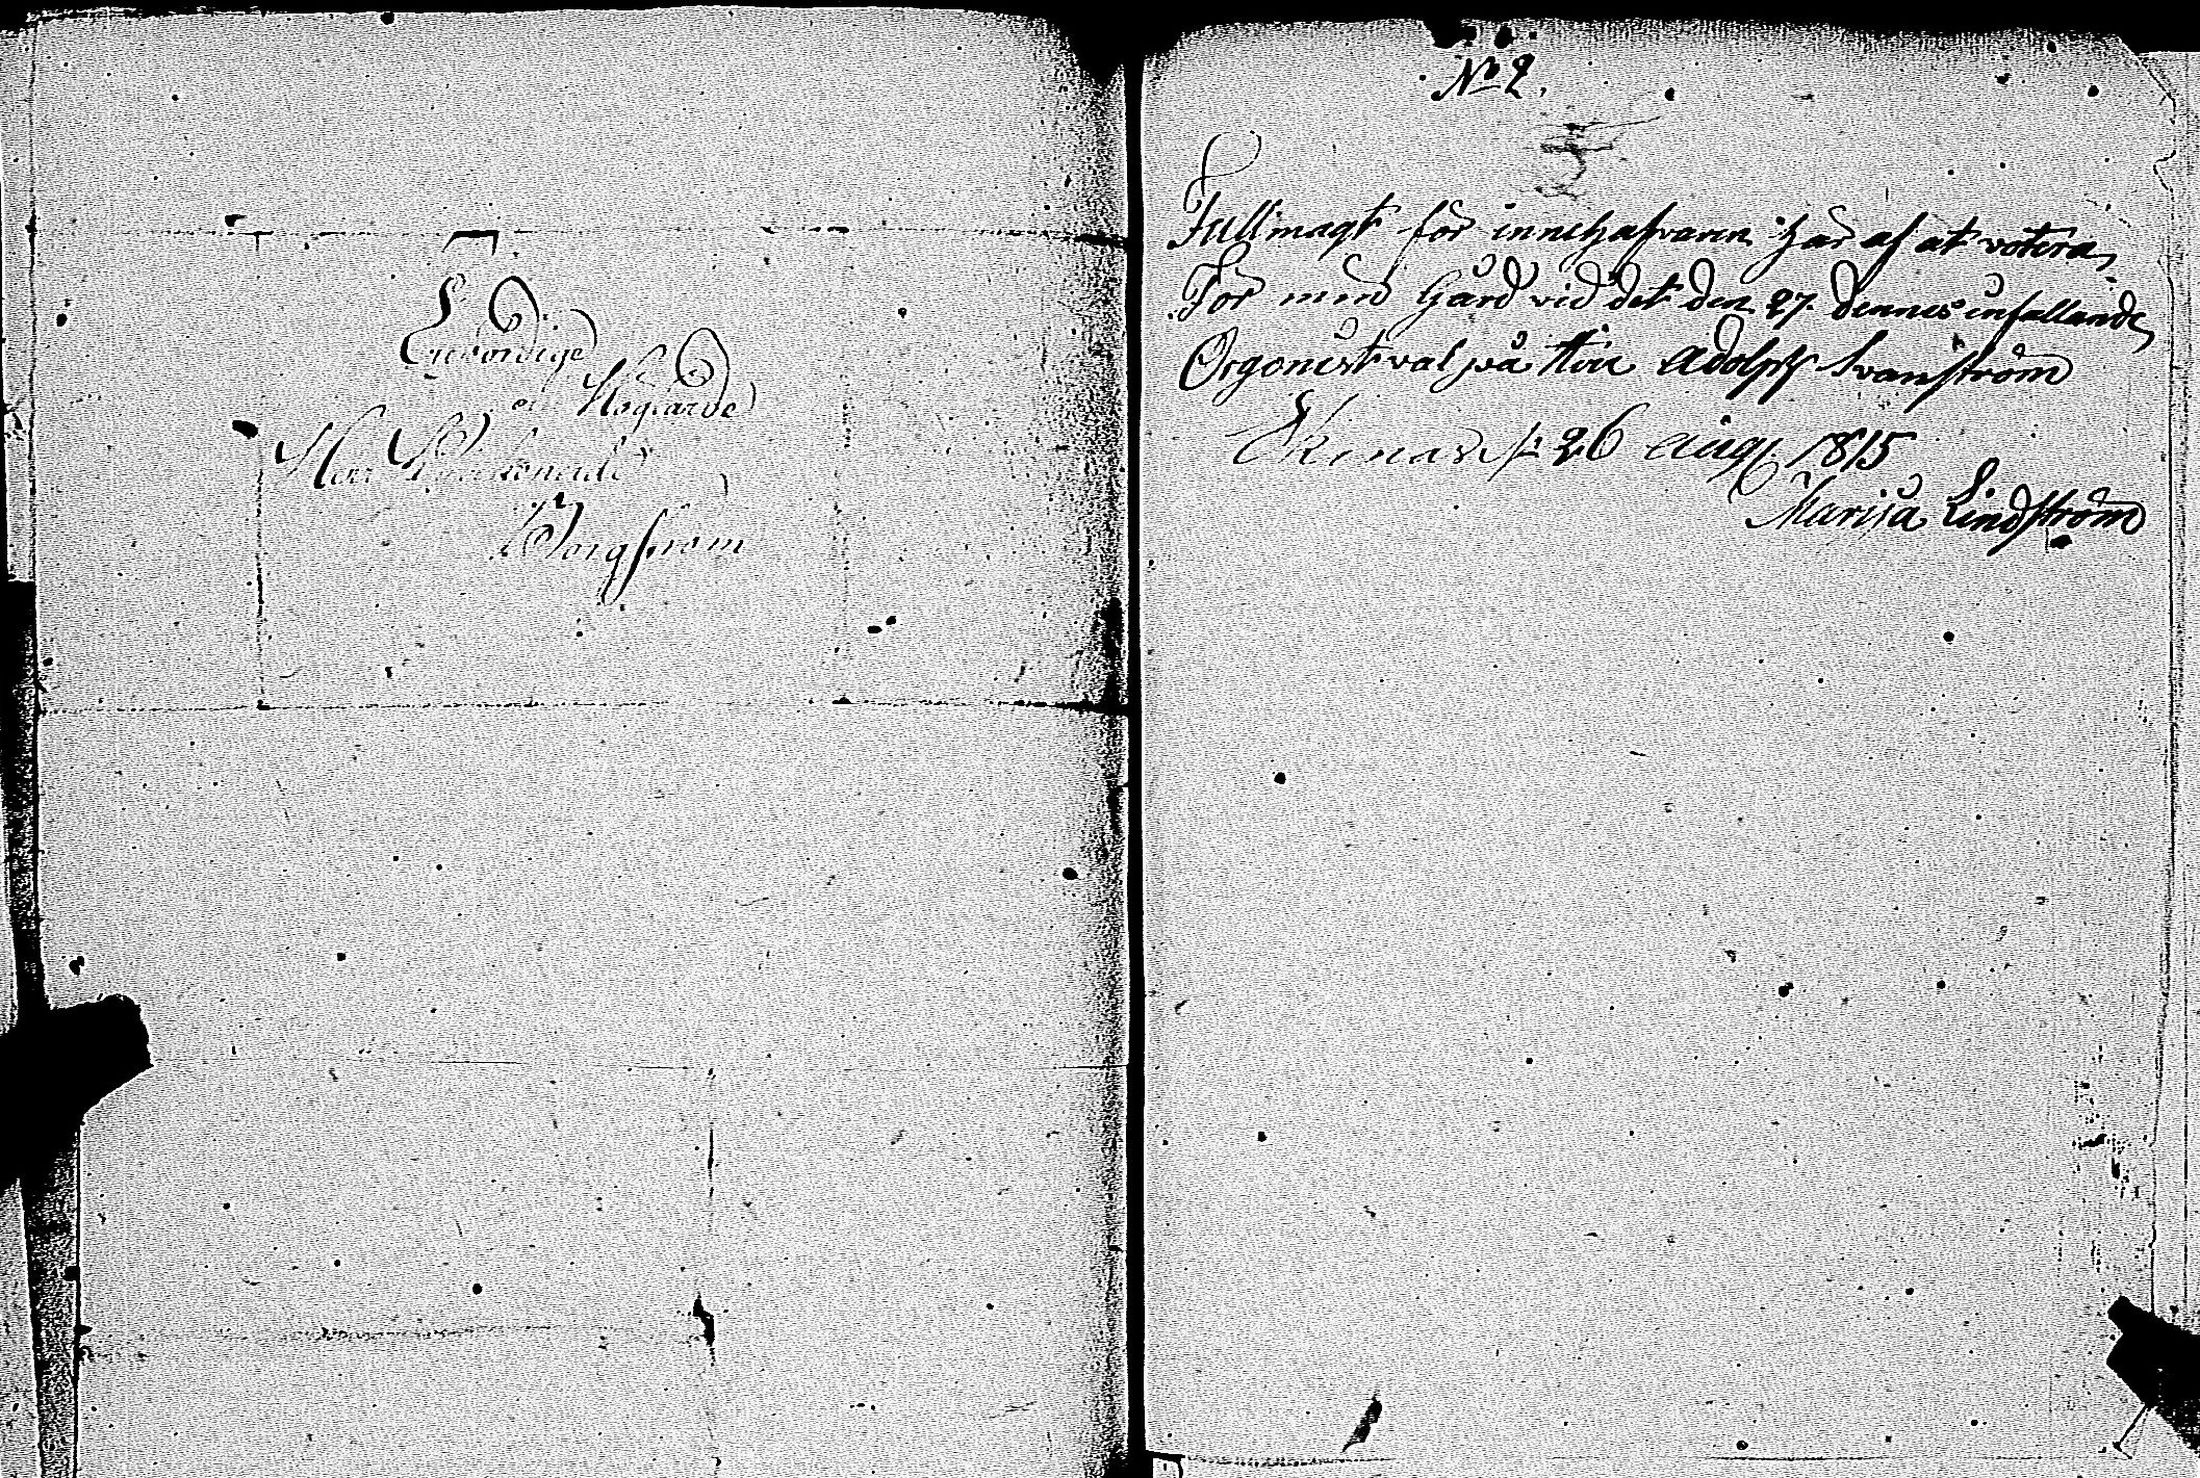 Ärevördige
och Höglärde
Herr Kyrkoherde
Borgström
No 2.
Fullmagt för innehafvaren här af at votera
För min Gård vid det den 27. dennes infallande
Orgonist val på Herr Adolph Svanström
Ekenäs d. 26 Aug. 1815
Marija Lindström